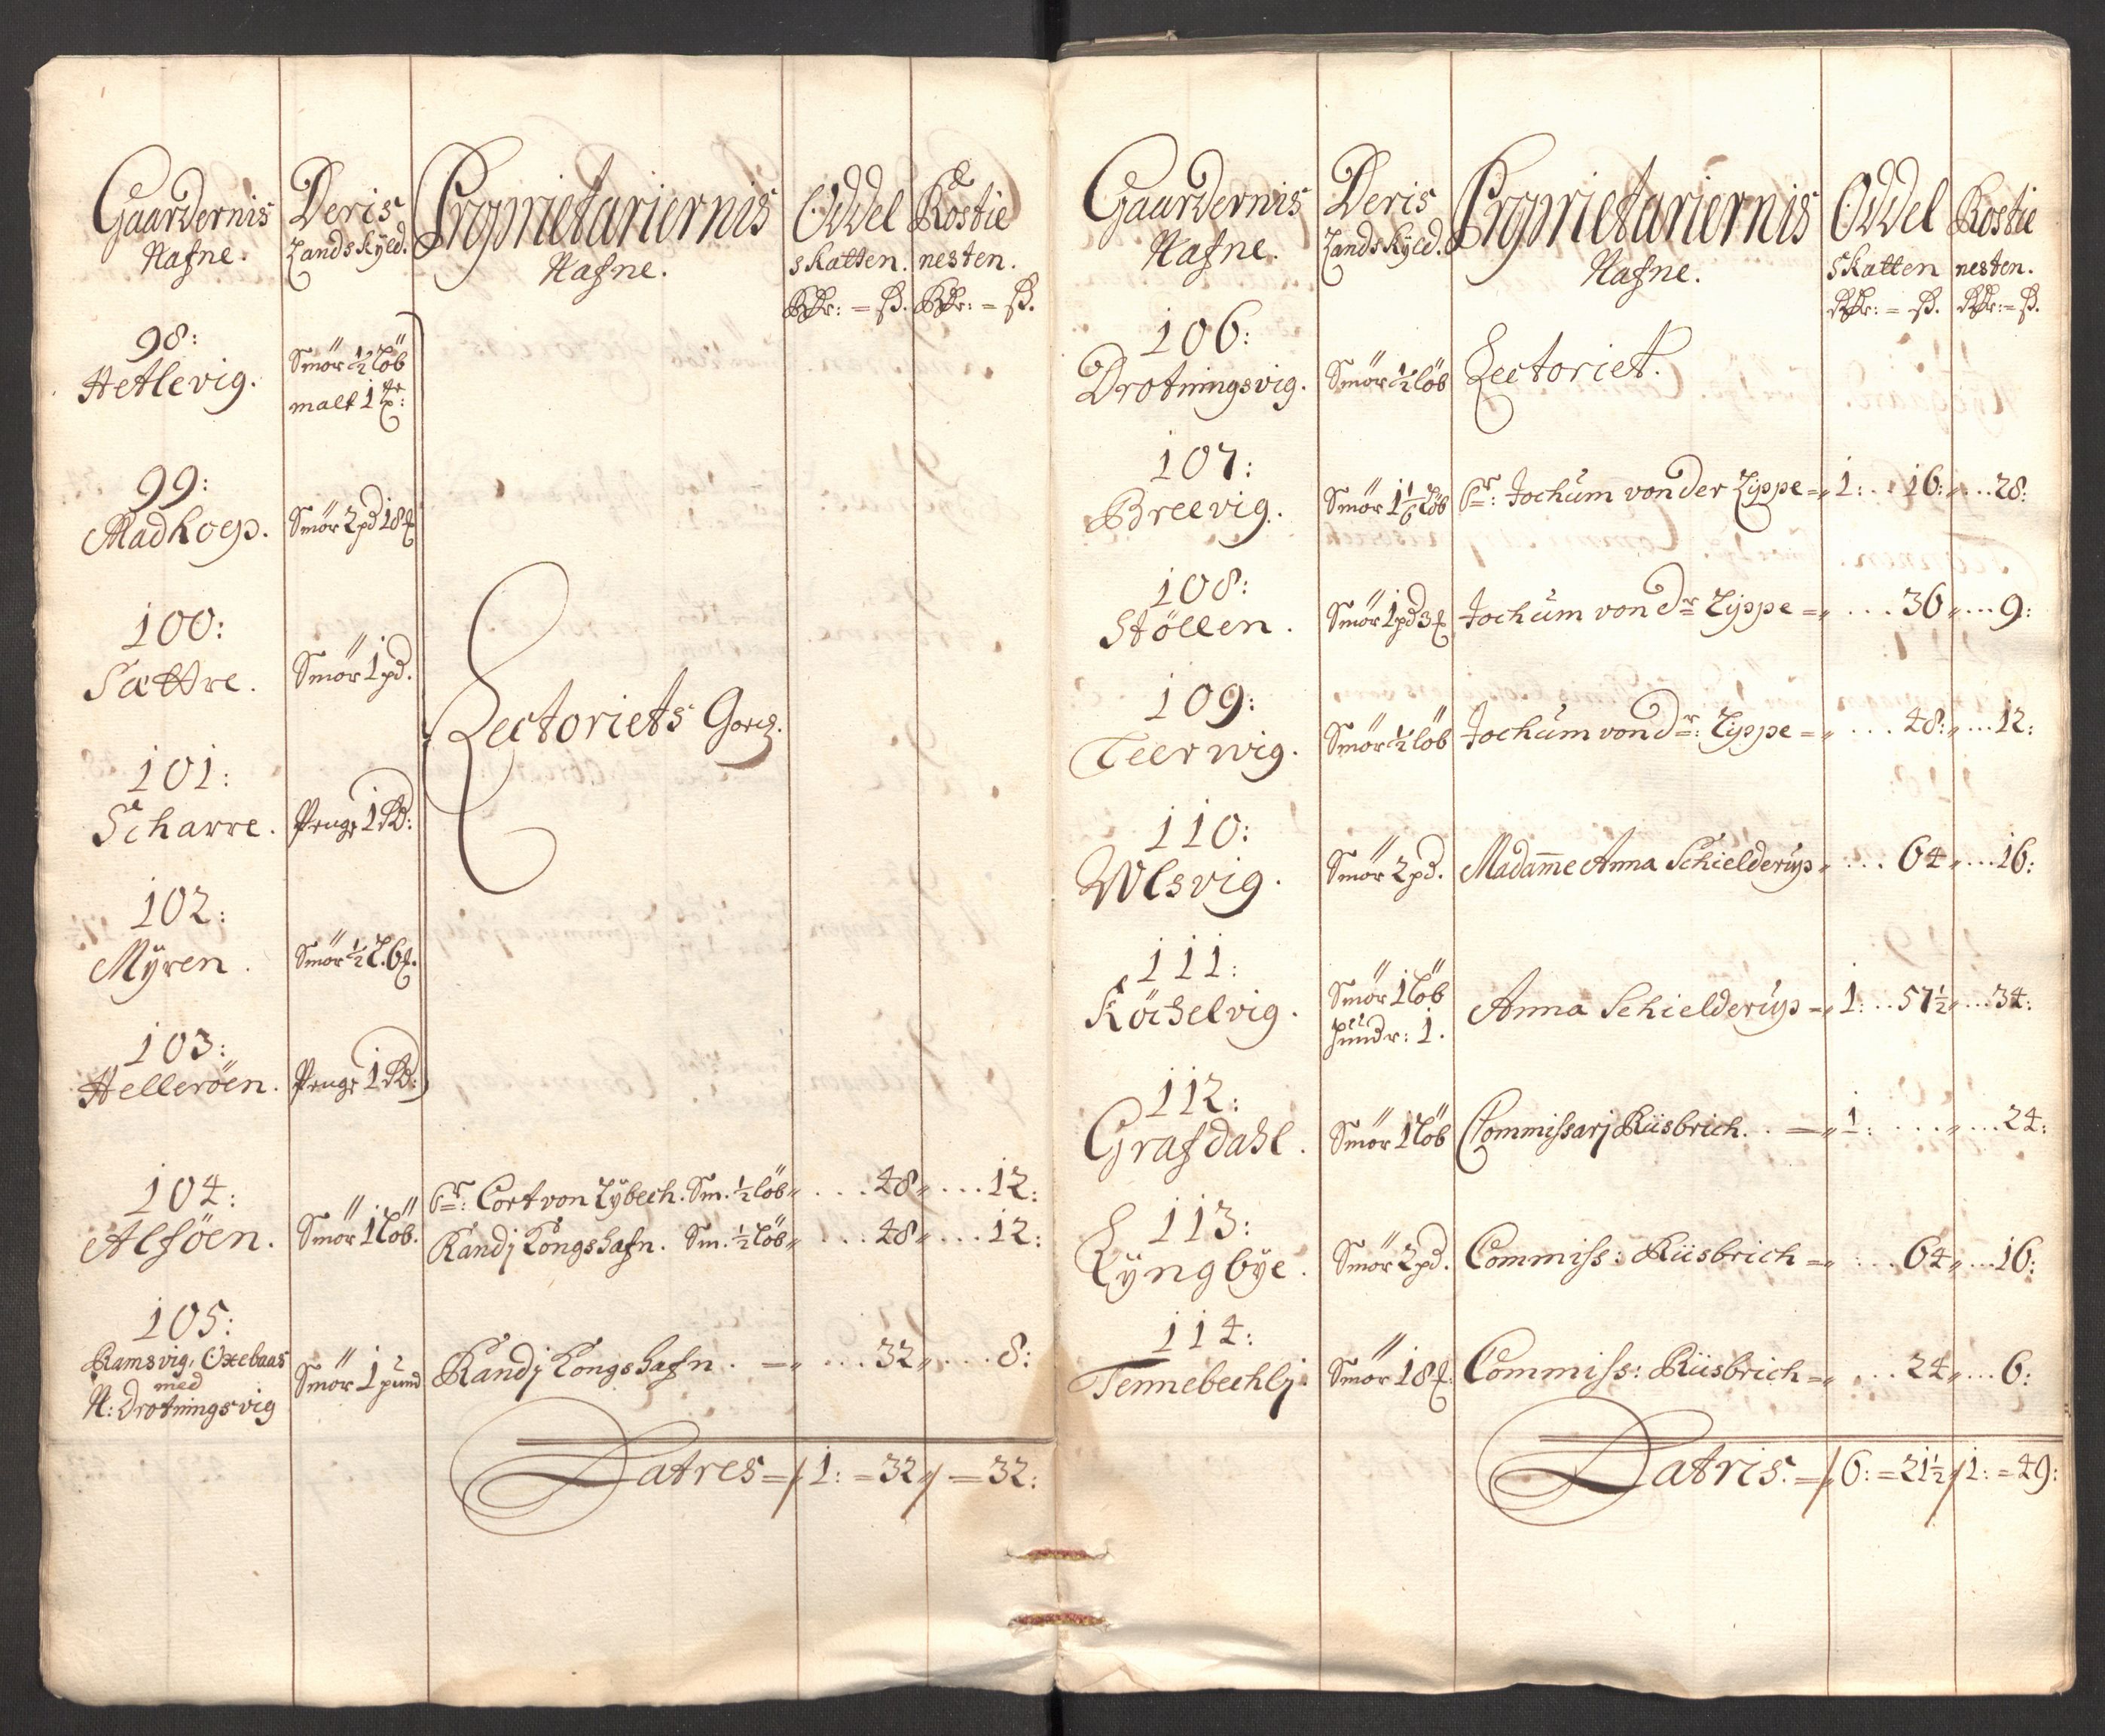 Gaardernis Nafne.
Deris Landskyld.
Proprietariernis Nafne.
Oddel skatten. Rdr: = ß.
Rostie nesten. Rdr: = ß.
98:
Hetlevig. Smör ½ löb
malt 1
99:
Madhoep. Smör 2 pd 18
100:
Sættre. Smör 1 pd.
Lectoriets
101:
Scharre. Penge 1
102:
Mÿren. Smör ½ l. 6
103:
Helleröen. Penge 1
104:
Alföen. Smör 1 löb.
Sr: Cort von Lÿbech. Sm. ½ löb „ ... 48 „ ... 12:
Randj Kongshafn. Sm. ½ löb „ ... 48 „ ... 12:
105:
Ramsvig, Oxebaas
med
N: Drotningsvig
Smör 1 pund Randj Kongshafn. = „ ... 32 „ ... 8:
Latres = / 1: = 32 „ / = 32:
Gaardernis Nafne.
Deris Landskyld.
Proprietariernis Nafne.
Oddel skatten Rdr: = ß.
Rostie nesten. Rdr: = ß.
106:
Drotningsvig. Smör ½ löb Lectoriet.
107:
Breevig. Smör 1 1/6 löb Sr: Jochum von der Lippe = „ 1: .. 16: „ ... 28:
108:
Stöllen. Smör 1 pd 3 Jochum von dr Lippe = „ ... 36 „ ... 9:
109:
Teerwig. Smör ½ löb Jochum von dr: Lippe = „ ... 48: „ ... 12:
110:
Wlsvig. Smör 2 pd. Madame Anna Schielderup „ ... 64 „ ... 16:
111:
Köchelvig. Smör 1 löb
hundr: 1.
Anna Schielderup = „ 1: .. 57½ „ ... 34:
112:
Grafdahl. Smör 1 löb Commissarj Riisbrich. . = „ 1: ... „ ... 24:
113:
Lÿngbÿe. Smör 2 pd. Commiss: Riisbrich = „ ... 64 „ ... 16:
114:
Tennebechlj. Smör 18 Commiss: Riisbrich = „ ... 24 „ ... 6:
Latris. = / „ 6: = 21½ / 1: = 49: